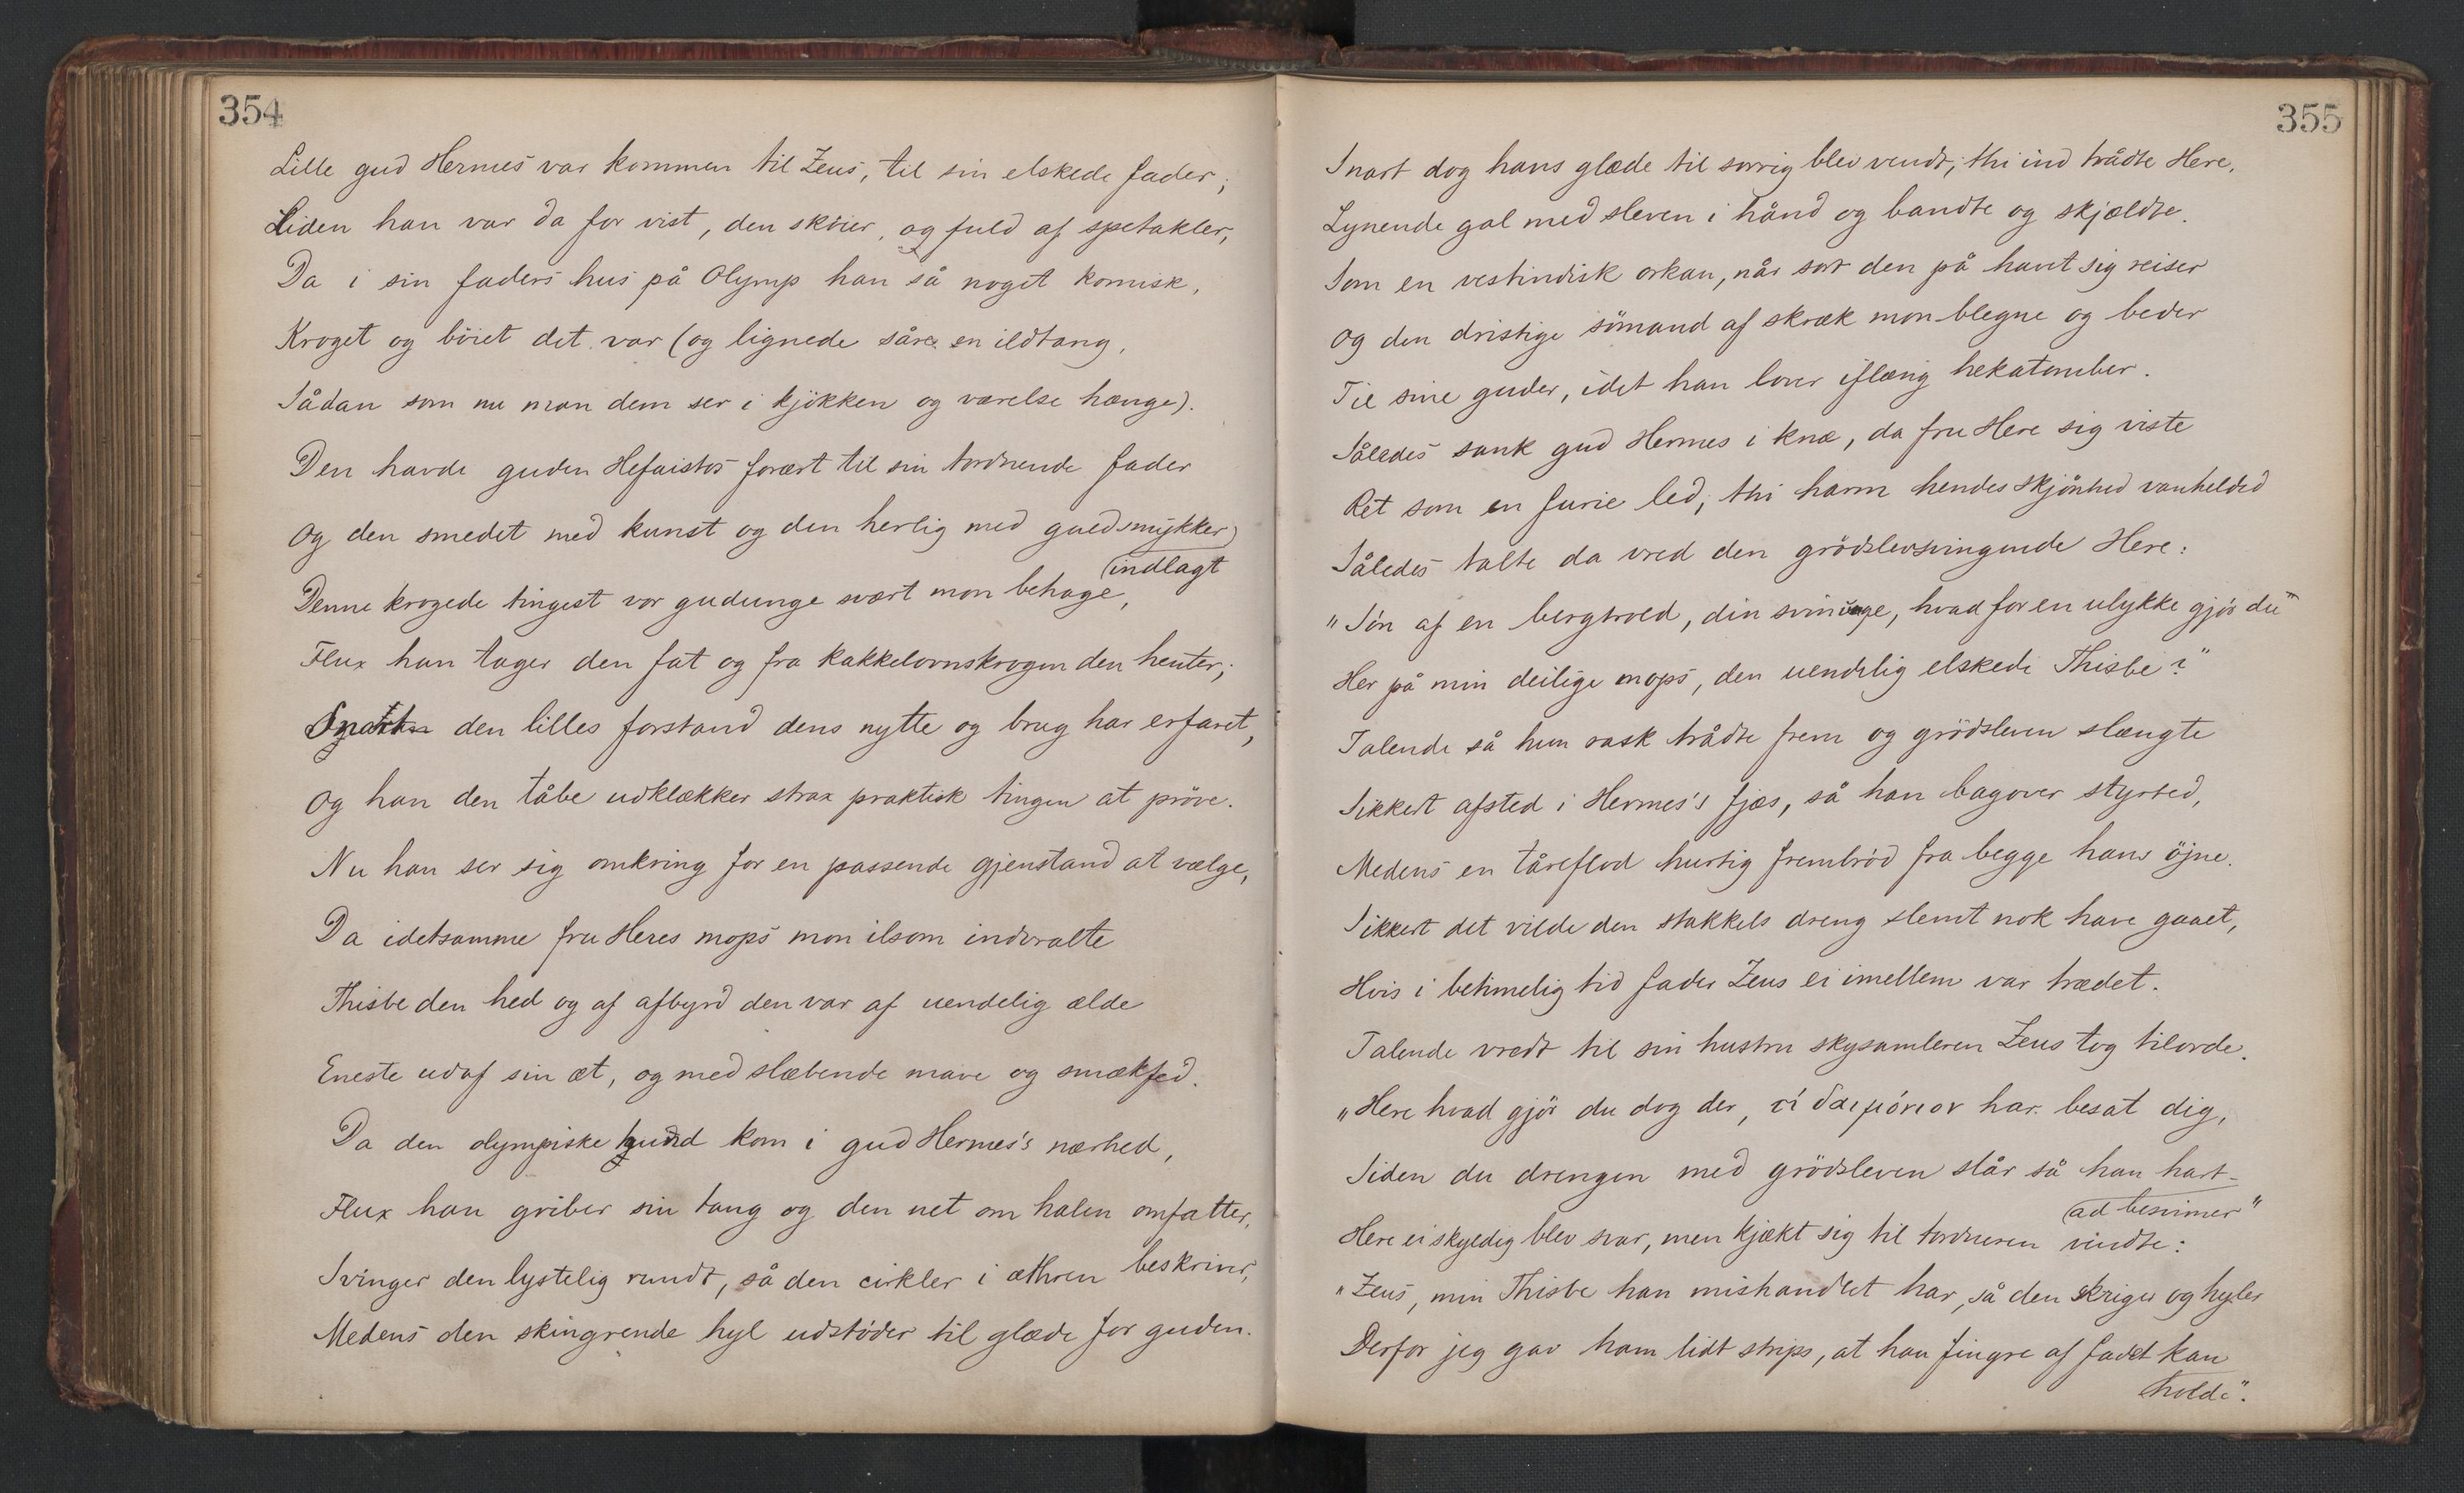 354
Lille gud Hermes var kommen til Zeus, til sin elskede fader;
Liden han var da for vist, den skøier, og fuld af spetakler,
Da i sin faders hus på Olymp han så noget komisk,
Kroget og böiet det var (og lignede såre en ildtang,
Sådan som nu man dem ser i kjökken og værelse hænge).
Den havde guden Hefaistos forært til sin tordnende fader
Og den smedet med kunst og den herlig med guldsmykker
indlagt
Denne krogede tingest vor gudunge svært mon behage,
Flux han tager den fat og fra kakkelovnskrogen den henter;
den lilles forstand dens nytte og brug har erfaret,
Og han den tåbe udklækker strax praktisk tingen at pröve.
Nu han ser sig omkring for en passende gjenstand at vælge,
Da idetsamme fru Heres mops mon ilsom indvralte
Thisbe den hed og af afbyrd den var af uendelig ælde
Eneste udaf sin æt, og med slæbende mave og smækfed.
Da den olympiske hund kom i gud Hermes's nærhed,
Flux han griber sin tang og den net om halen omfatter,
Svinger den lystelig rundt, så den cirkler i æthren beskriver,
Medens den skingrende hyl udstöder til glæde for guden.
355
Snart dog hans glæde til sorrig blev vendt; thi ind trådte Here,
Lynende gal med sleven i hånd og bandte og skjældte.
Som en vestindisk orkan, når sort den på havet sig reiser
Og den dristige sömand af skræk mon blegne og beder
Til sine guder, idet han lover iflæng hekatomber.
Således sank gud Hermes i knæ, da fru Here sig viste
Ret som en furie led; thi harm hendes skjönhed vanhelded
Således talte da vred den grödslevsvingende Here:
"Sön af en bergtrold, din svinunge, hvad for en ulykke gjör du
Her på min deilige mops, den uendelig elskede Thisbe?"
Talende så hun rask trådte frem og grödsleven slængte
Sikkert afsted i Hermes's fjæs, så han bagover styrted,
Medens en tåreflod hurtig frembröd fra begge hans öjne.
Sikkert det vilde den stakkels dreng slemt nok have gaaet,
Hvis i betimelig tid fader Zeus ei imellem var trædet.
Talende vredt til sin hustru skysamleren Zeus tog tilorde.
"Here hvad gjör du dog der, τί δαιμόνιον har besat dig,
Siden du drengen med grödsleven slår så han hart-
ad besvimer"
Here ei skyldig blev svar, men kjækt sig til tordneren vendte:
"Zeus, min Thisbe han mishandlet har, så den skriger og hyler
Derfor jeg gav ham lidt strips, at han fingre af fadet kan
holde".